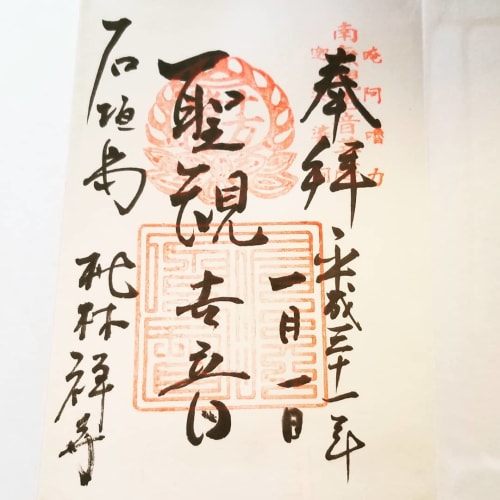 唵阿嚕力
奉拝
平成三十一年
一月一日
聖観世音
石垣島
桃林禅寺